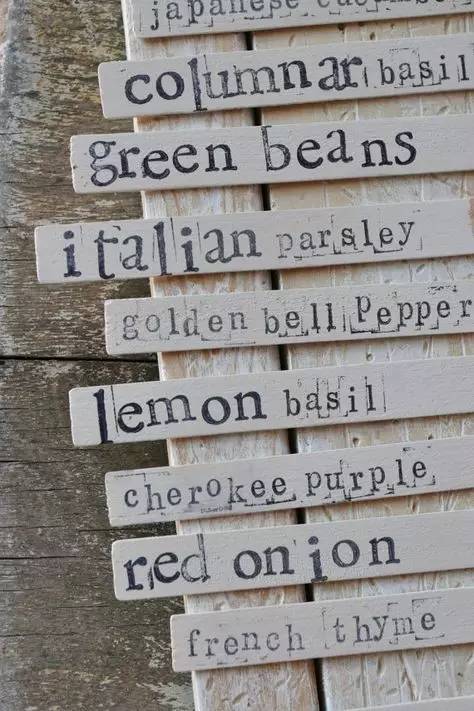 japanese cucumber
columnar basil
green beans
italian parsley
golden bell pepper
lemon basil
cherokee purple
red onion
french thyme